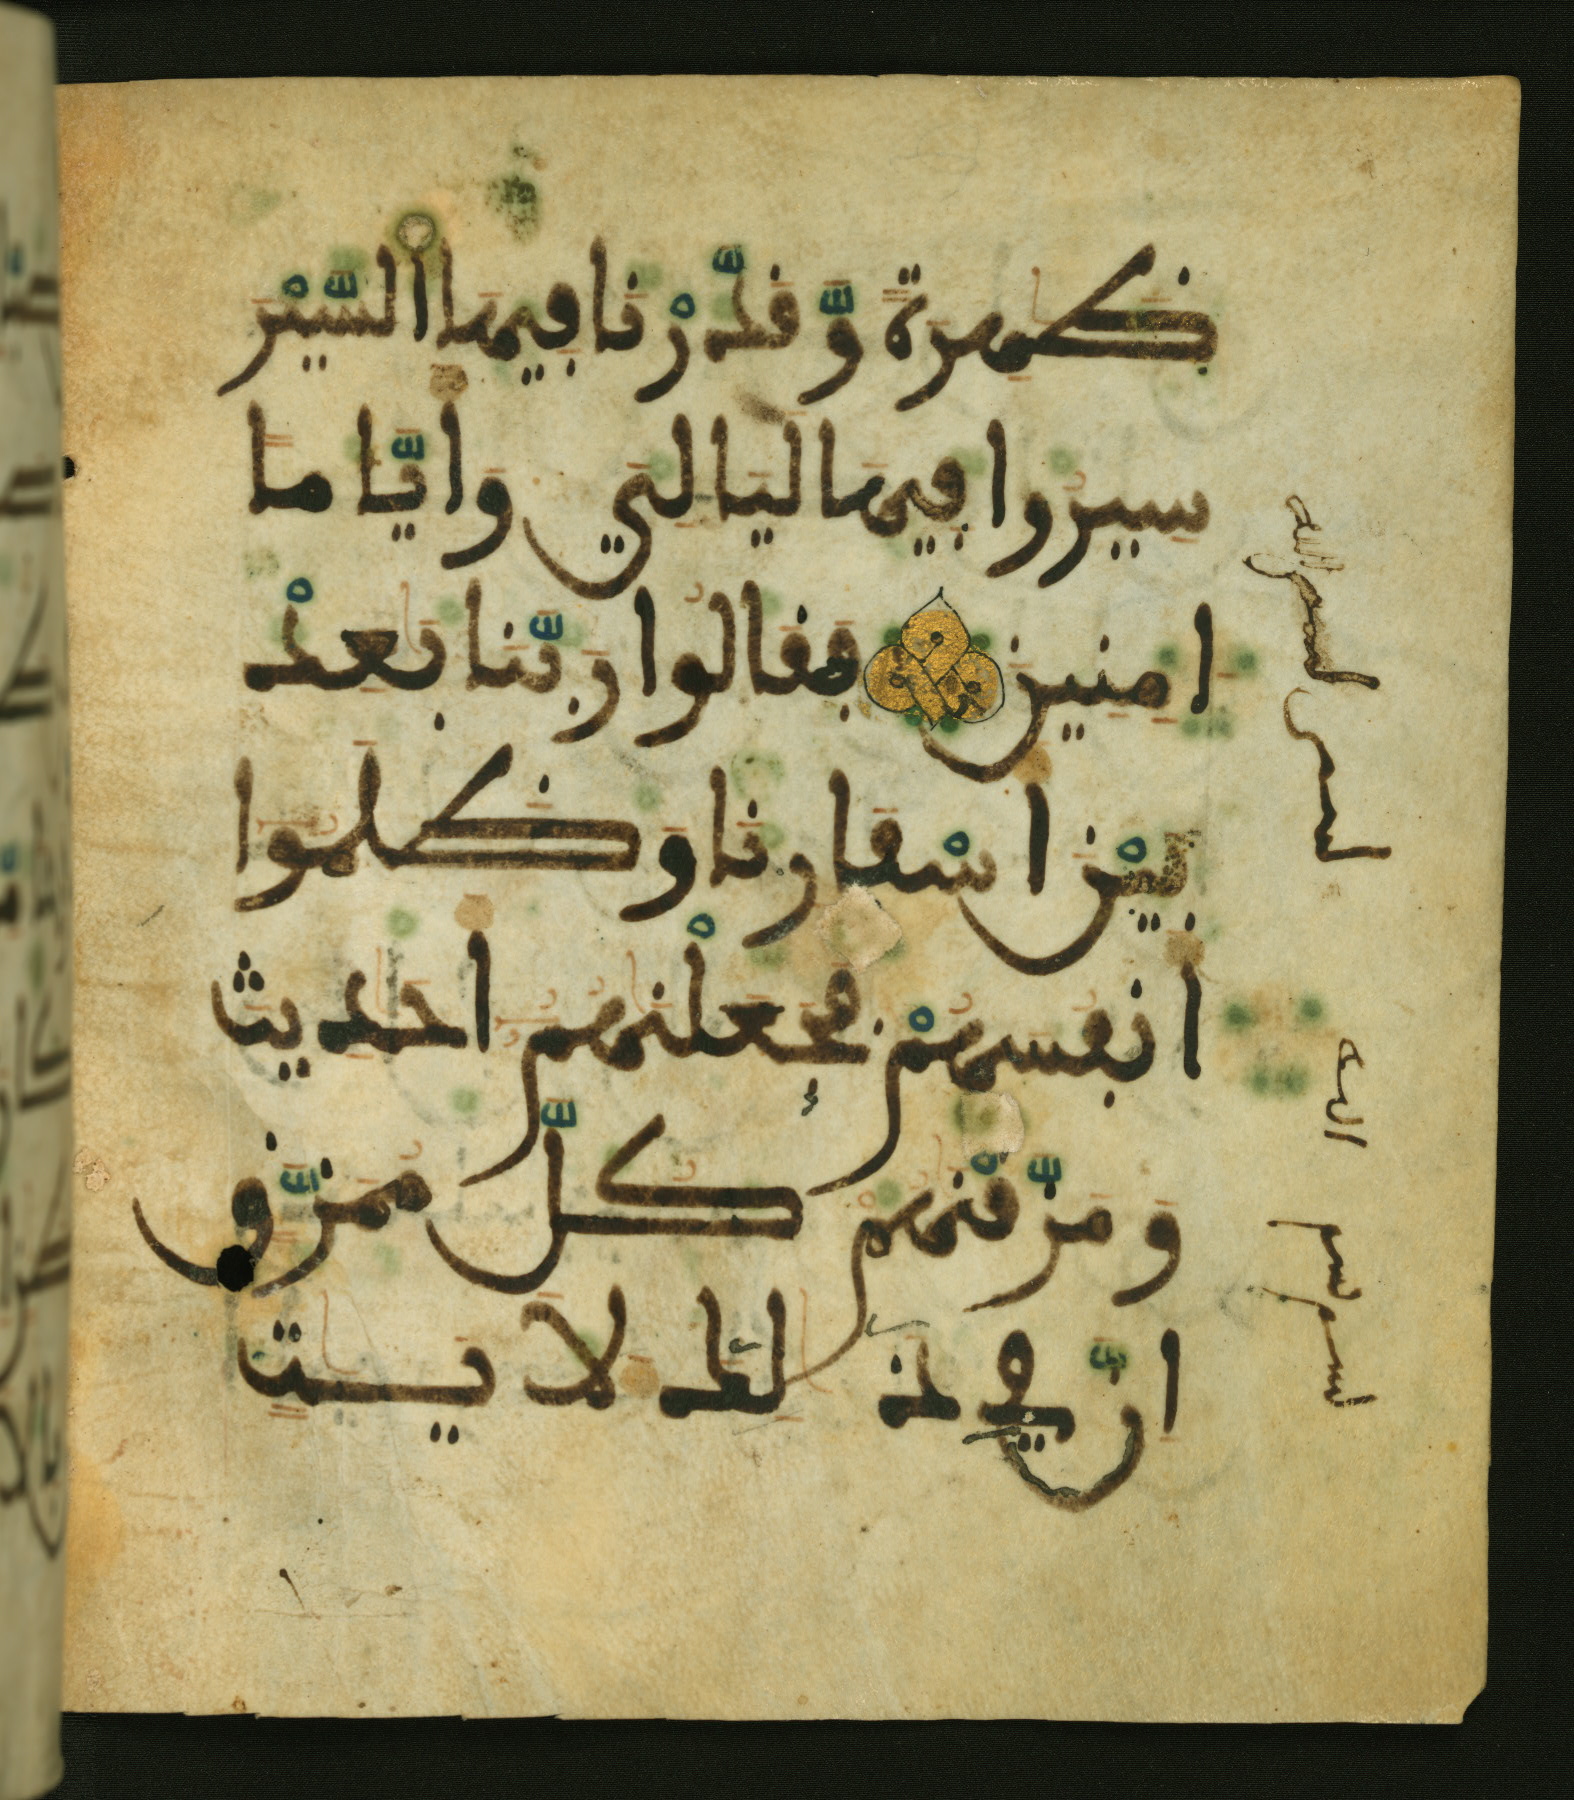 ظَٰهِرَةً وَّقَدَّرْنَا فِيهَا السَّيْرَ
سِيرُوا فِيهَا لَيَالِيَ وَأَيَّامًا
امِنِينَ فَقَالُوا رَبَّنَا بَٰعِدْ
بَيْنَ أَسْفَارِنَا وَظَلَمُوا
أَنفُسَهُمْ فَجَعَلْنَٰهُمُ أَحَٰدِيثَ
وَمَزَّقْنَٰهُمْ كُلَّ مُمَزَّقٍ
اِنَّ فِي ذَٰلِكَ لَايَٰتٍ